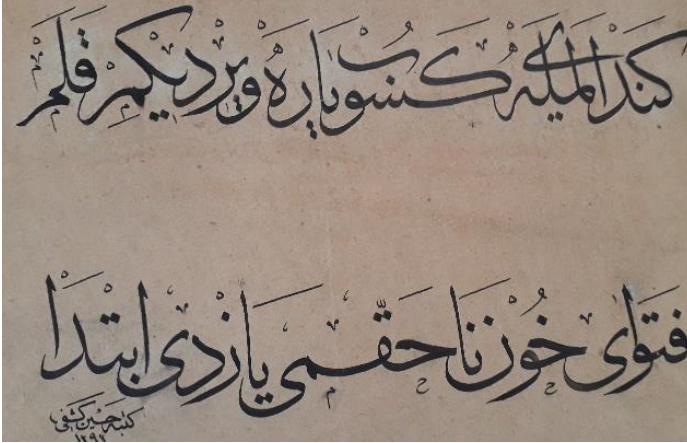 كند الميله كسوب ياره ويرديكم قلم
فتواى خون ناحقمى يازدى ابتدا
كتبه حسين كشفى
١٢٩٢